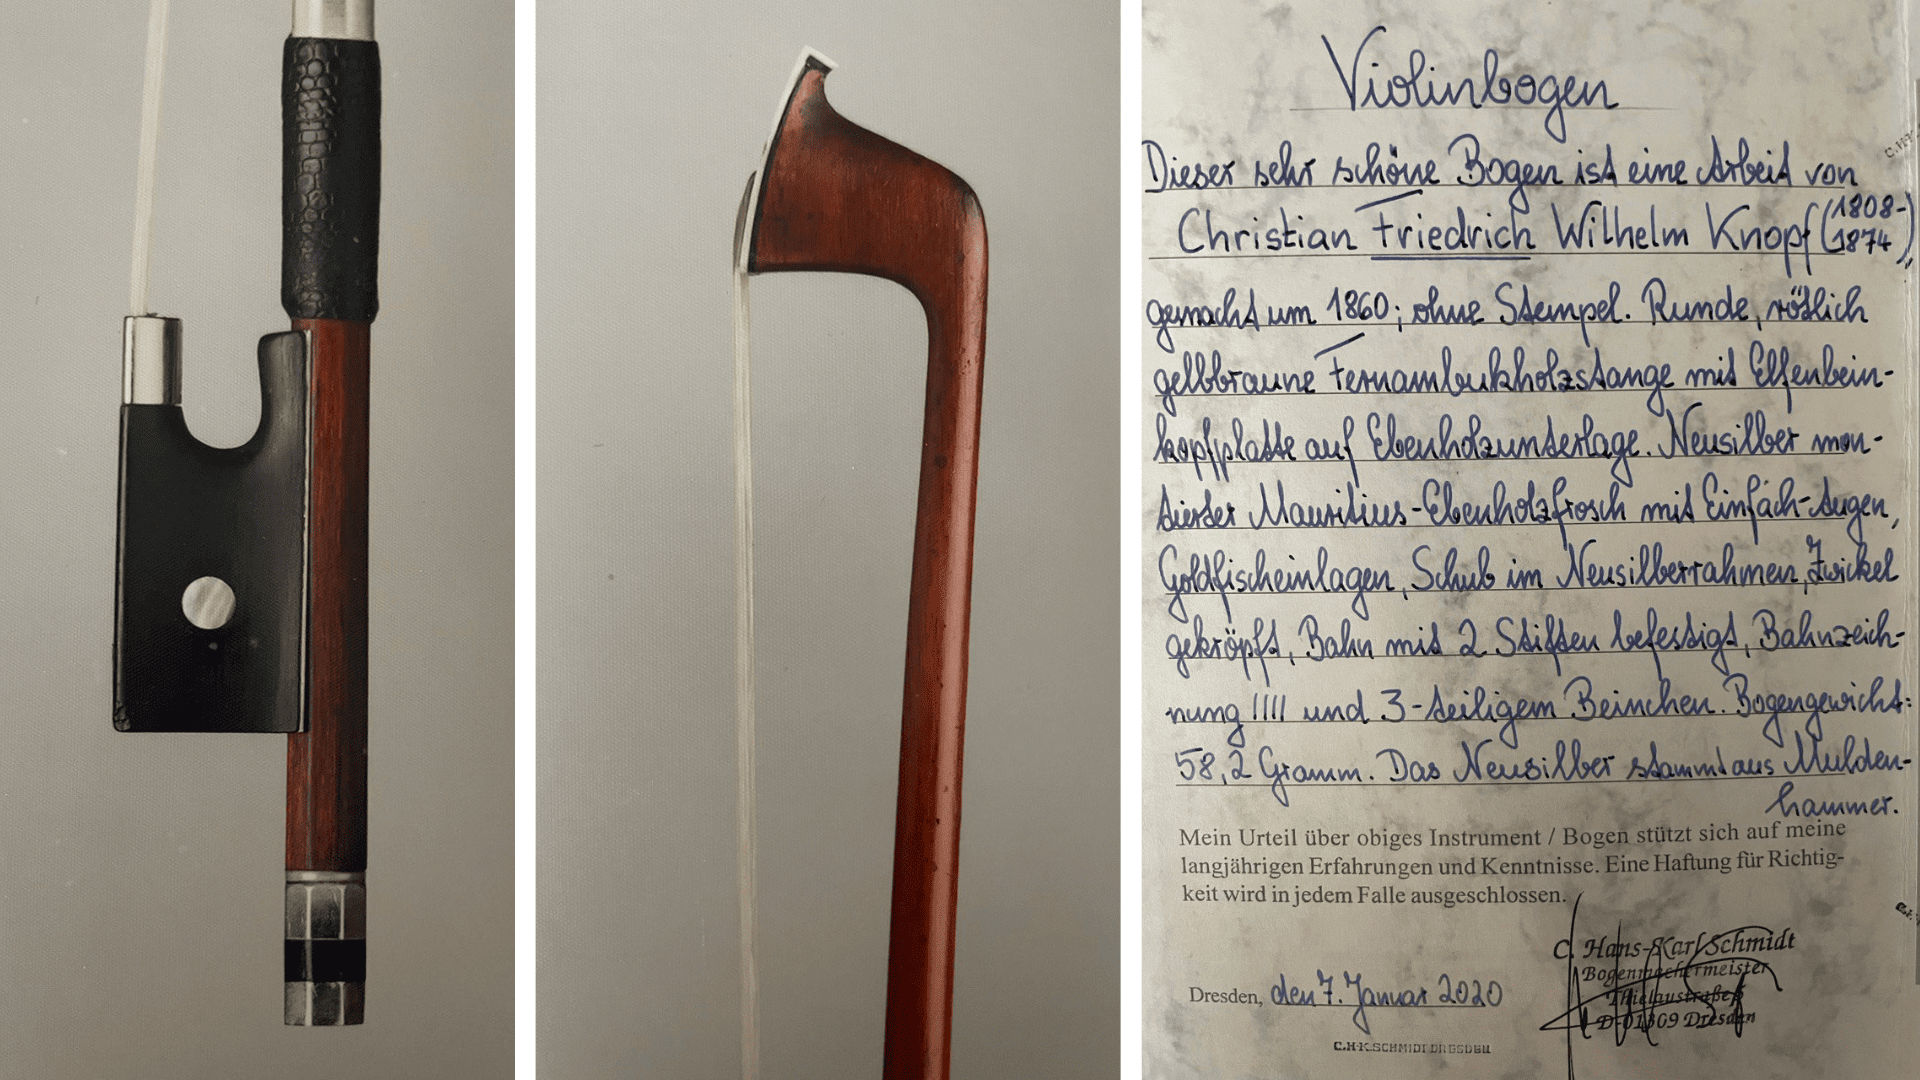 Violinbogen
Dieser sehr schöne Bogen ist eine Arbeit von
Christian Friedrich Wilhelm Knopf (1808-1874),
gemacht um 1860; ohne Stempel. Runde, rötlich
gelbbraune Fernambukholzstange mit Elfenbein-
kopfplatte auf Ebenholzunterlage. Neusilber mon-
tierter Mauritius-Ebenholzfrosch mit Einfach-Augen,
Goldfischeinlagen, Schub im Neusilberrahmen, Zwickel
gekröpft, Bahn mit 2 Stiften befestigt, Bahnzeich-
nung IIII und 3-teiligem Beinchen. Bogengewicht:
58,2 Gramm. Das Neusilber stammt aus Mulden-
hammer.
Mein Urteil über obiges Instrument / Bogen stützt sich auf meine
langjährigen Erfahrungen und Kenntnisse. Eine Haftung für Richtig-
keit wird in jedem Falle ausgeschlossen.
C. Hans-Karl Schmidt
Bogenmachermeister
D-01309 Dresden
Dresden, den 7. Januar 2020
C.H-K.SCHMIDT DRESDEN